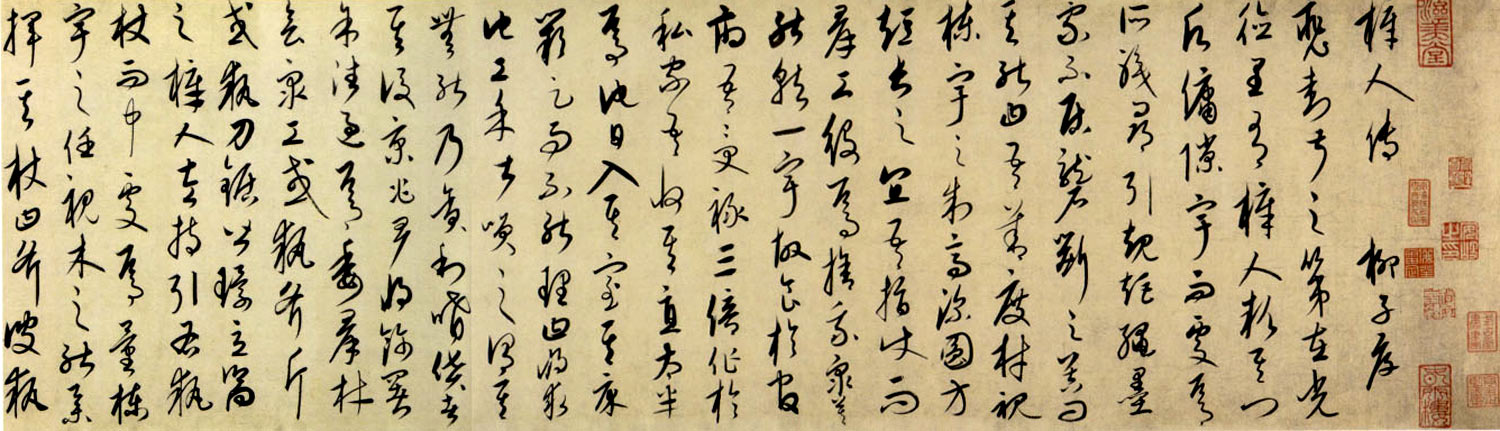 梓人传 柳子厚
裴封叔之第在光
德里有梓人款其門
願傭隙宇而處焉
所職尋引規矩繩墨
家不居礱斲之器問
其能曰吾善度材視
棟宇之制高深圓方
短長之宜吾指使而
群工役焉捨我眾莫
能就一宇故食於官
府吾受祿三倍作於
私家吾收其直太半
焉他日入其室其床
闕足而不能理曰將求
他工余甚笑之謂其
無能乃貪利嗜貨者
其後京兆尹將飾署
余往過焉委群材
會眾工或執斧斤
或執刀鋸皆環立嚮
之梓人左持引右執
杖而中處焉量棟
宇之任視木之能舉
揮其杖曰斧彼執